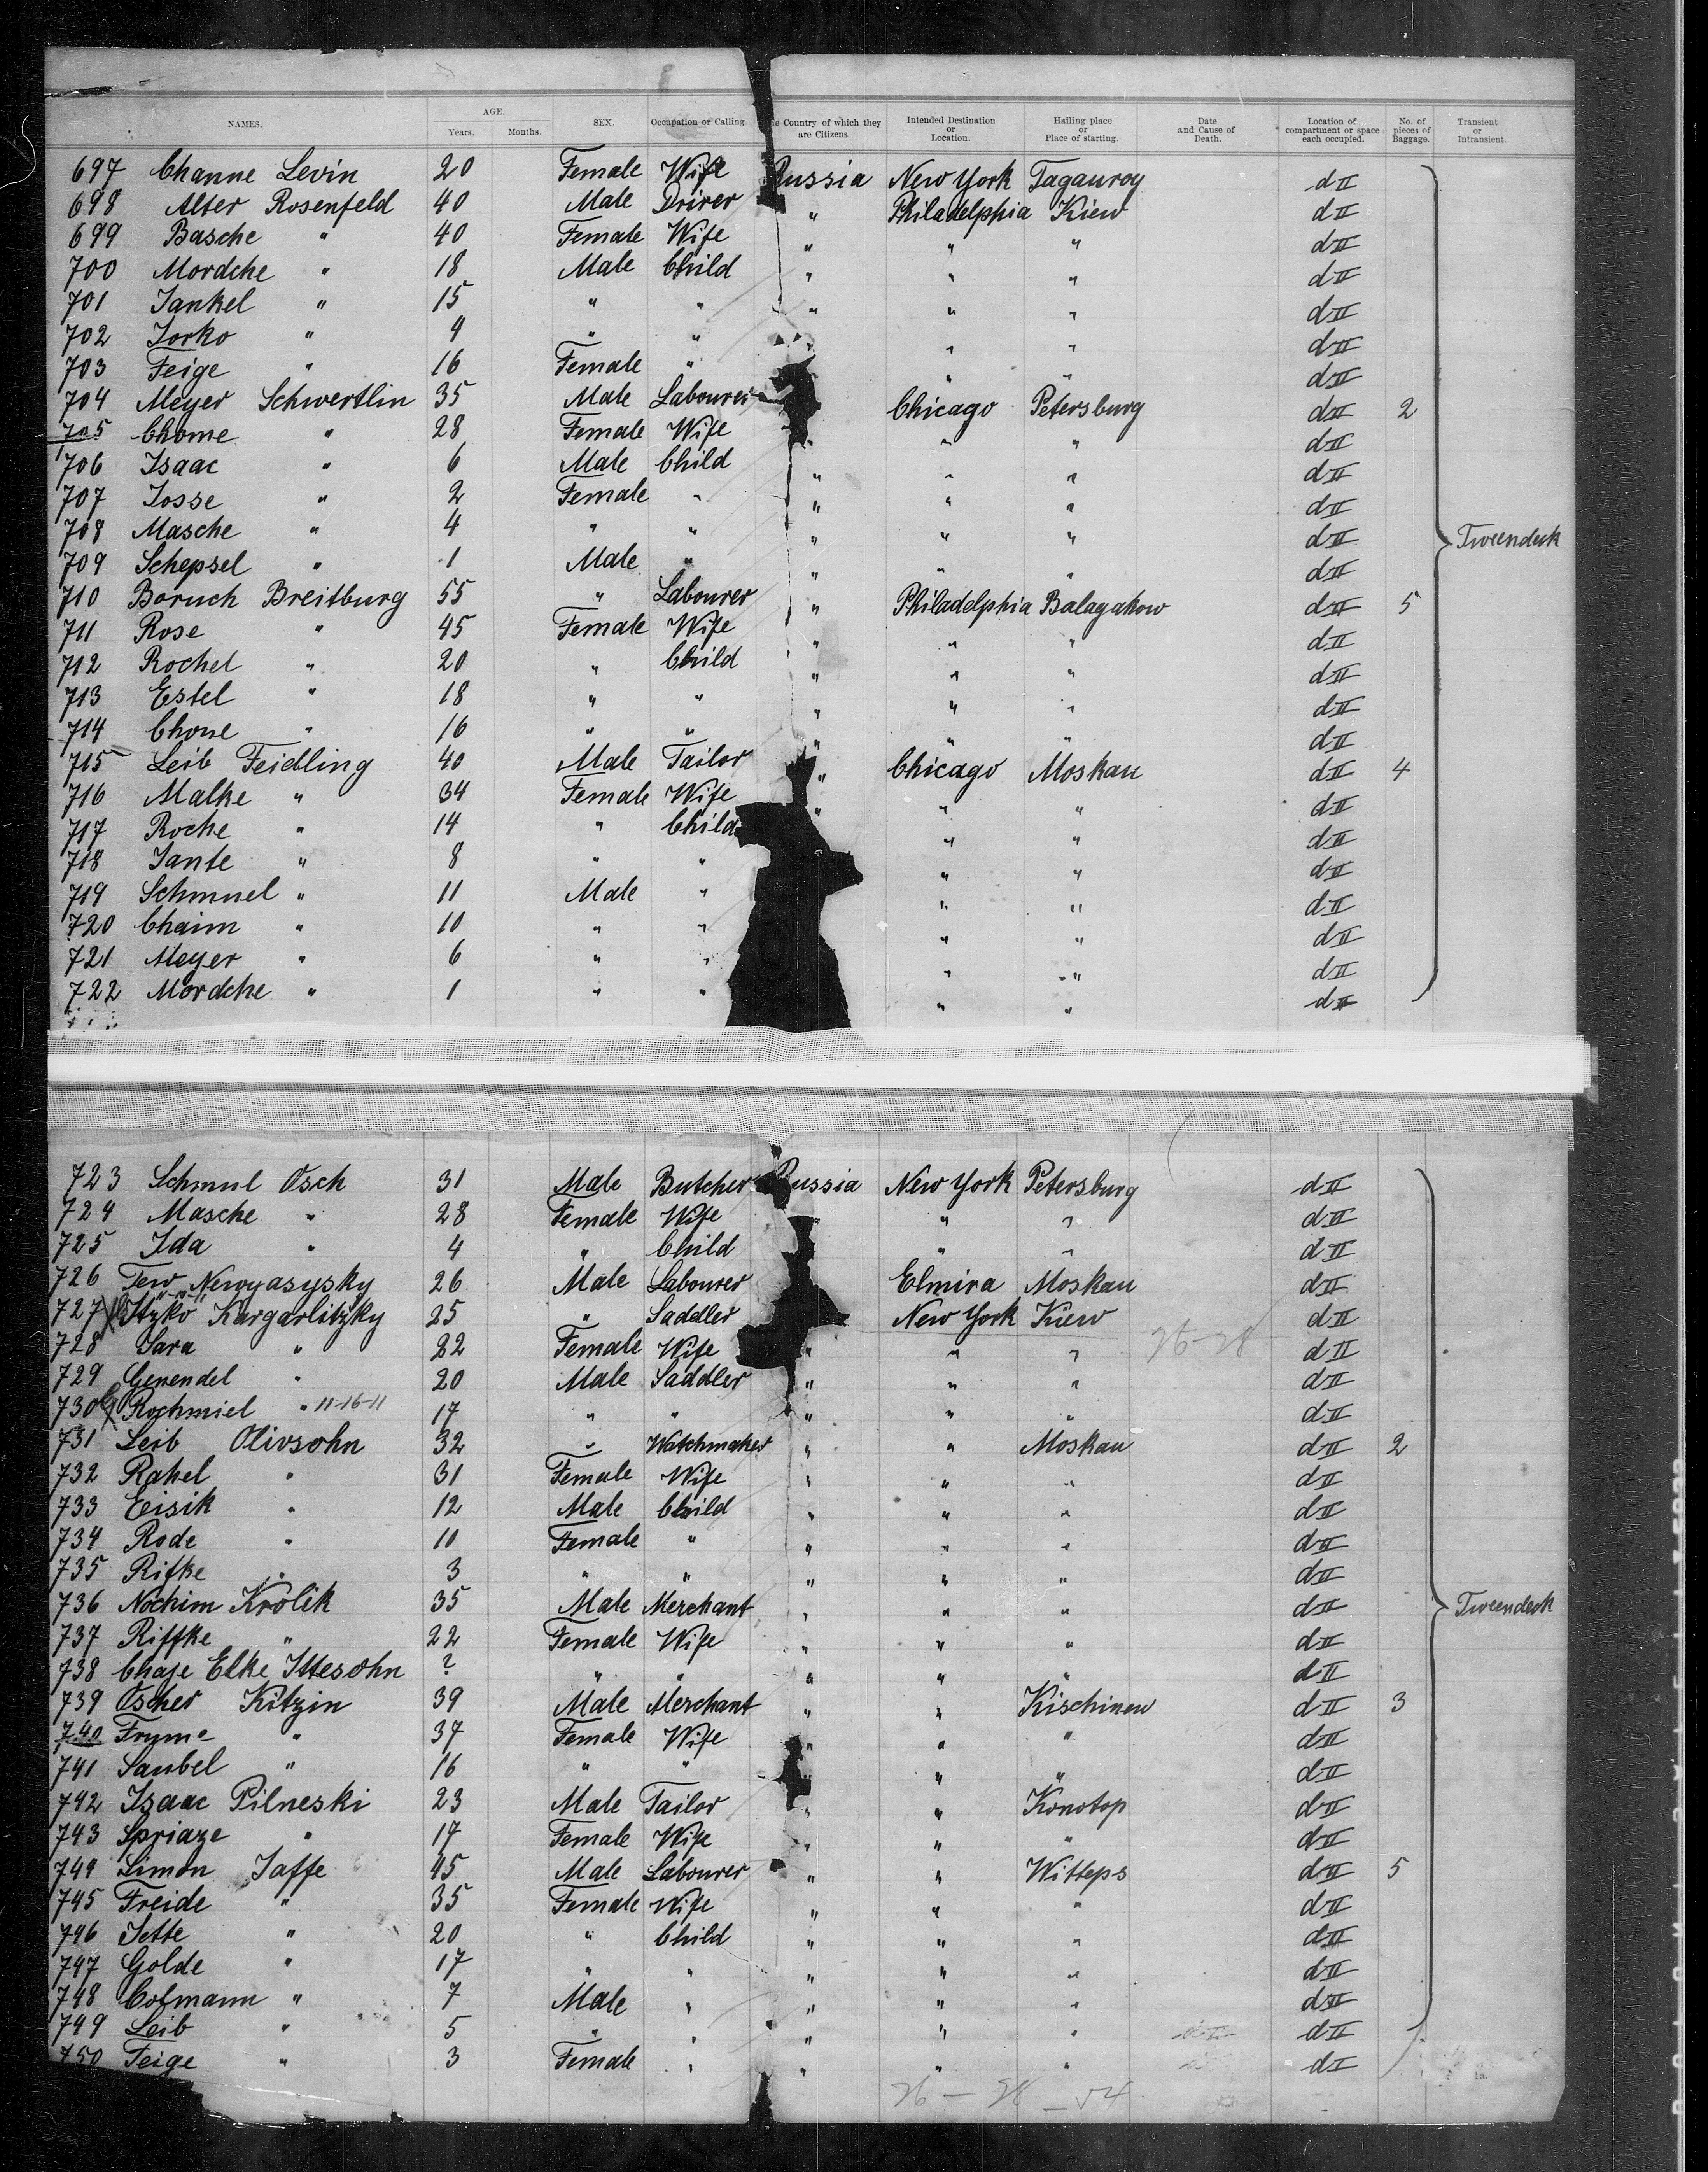 NAMES. AGE. Years. Months. SEX. Occupation or Calling. e Country of which they are Citizens Intended Destination or Location. Hailing place or Place of starting. Date and Cause of Death. Location of compartment or space each occupied. No. of pieces of Baggage. Transient or Intransient.
697 Channe Levin 20 Female Wife Russia New York Taganrog d II
698 Alter Rosenfeld 40 Male Driver " Philadelphia Kiew d II
699 Basche " 40 Female Wife " " " d II
700 Mordche " 18 Male Child " " " d II
701 Jankel " 15 " " " " " d II
702 Jorko " 9 " " " " d II
703 Feige " 16 Female " " " d II
704 Meyer Schwertlin 35 Male Labourer Chicago Petersburg d II 2
705 Chome " 28 Female Wife " " " d II
706 Isaac " 6 Male Child " " " d II
707 Josse " 2 Female " " " " d II
708 Masche " 4 " " " " " d II Tweendeck
709 Schepsel " 1 Male " " " " d II
710 Boruch Breitburg 55 " Labourer " Philadelphia Balagakow d II 5
711 Rose " 45 Female Wife " " " d II
712 Rochel " 20 " Child " " " d II
713 Estel " 18 " " " " " d II
714 Chone " 16 " " " " " d II
715 Leib Feidling 40 Male Tailor " Chicago Moskau d II 4
716 Malke " 34 Female Wife " " " d II
717 Roche " 14 " Child " " d II
718 Jante " 8 " " " " d II
719 Schmuel " 11 Male " " " d II
720 Chaim " 10 " " " " d II
721 Meyer " 6 " " " " d II
722 Mordche " 1 " " " " d II
723 Schmul Osch 31 Male Butcher Russia New York Petersburg d II
724 Masche " 28 Female Wife " " d II
725 Ida " 4 " Child " " d II
726 Tew Newyasysky 26 Male Labourer Elmira Moskau d II
727 Itzko Kargarlitzky 25 " Saddler New York Kiew d II
728 Sara " 22 Female Wife " " " 26-28 d II
729 Genendel " 20 Male Saddler " " " d II
730 Rochmiel " 11-16-11 17 " " " " " d II
731 Leib Olivsohn 32 " Watchmaker " " Moskau d II 2
732 Rahel " 31 Female Wife " " " d II
733 Eisik " 12 Male Child " " " d II
734 Rode " 10 Female " " " " d II
735 Rifke " 3 " " " " " d II
736 Nochim Krolik 35 Male Merchant " " " d II Tweendeck
737 Riffke " 22 Female Wife " " " d II
738 Chaje Elke Ittesohn ? " " " " " d II
739 Oscher Kitzin 39 Male Merchant " " Kischinew d II 3
740 Frume " 37 Female Wife " " " d II
741 Saubel " 16 " " " " " d II
742 Isaac Pilneski 23 Male Tailor " " Konotop d II
743 Spriaze " 17 Female Wife " " " d II
744 Simon Jaffe 45 Male Labourer " " Witteps d II 5
745 Freide " 35 Female Wife " " " d II
746 Jette " 20 " Child " " " d II
747 Golde " 17 " " " " " d II
748 Colmann " 7 Male " " " " d II
749 Leib " 5 " " " " " d II
750 Feige " 3 Female " " " " d II
26 - 28 - 54